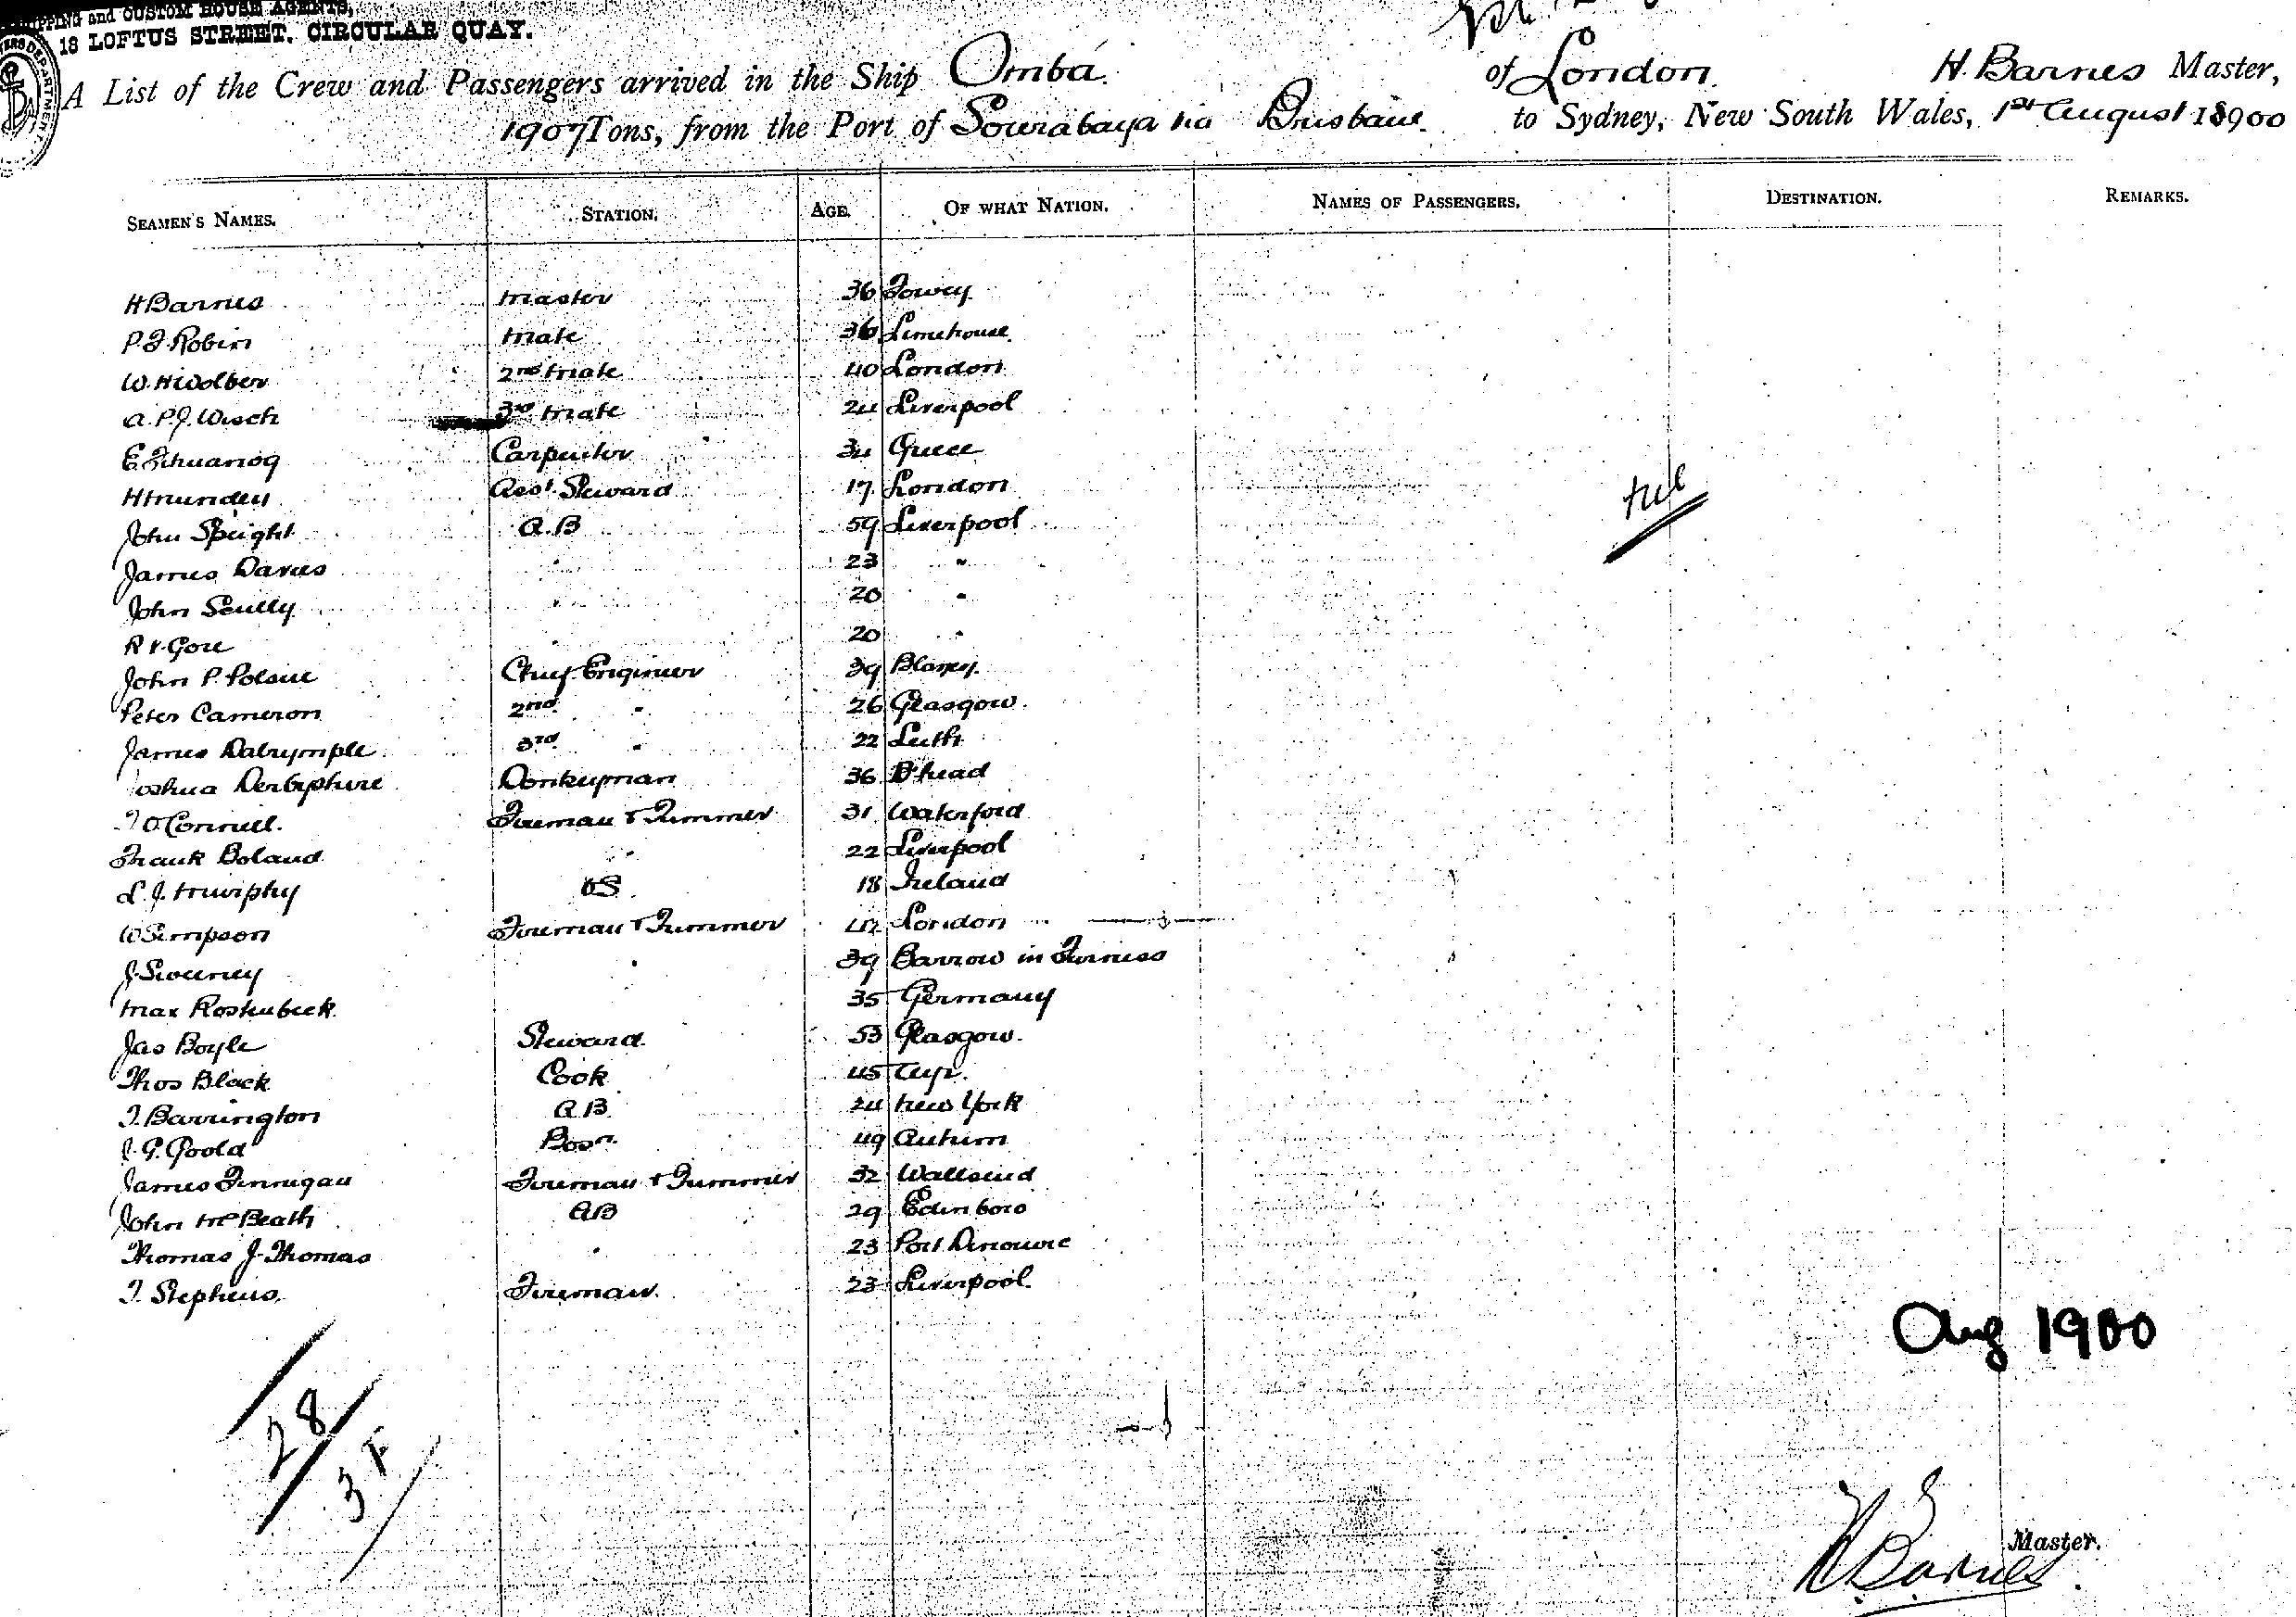 SHIPPING and CUSTOM HOUSE AGENTS,
18 LOFTUS STREET. CIRCULAR QUAY.
A List of the Crew and Passengers arrived in the Ship Omba of London H. Barnes Master,
1907 Tons, from the Port of Sourabaya via Brisbane to Sydney, New South Wales, 1st August 18900
SEAMEN'S NAMES. STATION. AGE. OF WHAT NATION. NAMES OF PASSENGERS. DESTINATION. REMARKS.
H Barnes Master 36 Fowey
P. F. Robin Mate 36 Limehouse
W. H Wolber 2nd Mate 40 London
A. P. J. Wisch 3rd Mate 24 Liverpool
E. Carpenter 34 Greece
H Munday Asst Steward 17 London
Nil
John Speight A.B 59 Liverpool
James Davies " 23 "
John Scully " 20 "
R V. Gore " 20 "
John P. Polsue Chief Engineer 39
Peter Cameron 2nd " 26 Glasgow
James Dalrymple 3rd " 22 Leith
Joshua Derbyshire Donkeyman 36 B'head
T O'Connell Fireman & Trimmer 31 Waterford
Frank Boland " 22 Liverpool
L. J. Murphy OS 18 Ireland
W Simpson Fireman & Trimmer 42 London
J. Sweeney " 39 Barrow in Furness
Max Roskubeck 35 Germany
Jas Boyle Steward 53 Glasgow
Thos Black Cook 45 Ayr
T. Barrington A.B. 24 New York
J. G. Goold Bosn 49 Antrim
James Finnigan Fireman & Trimmer 32 Wallsend
John McBeath AB 29 Edinboro
Thomas J. Thomas " 23 Port
T. Stephens Fireman 23 Liverpool
Aug 1900
28
3 F
H Barnes Master.